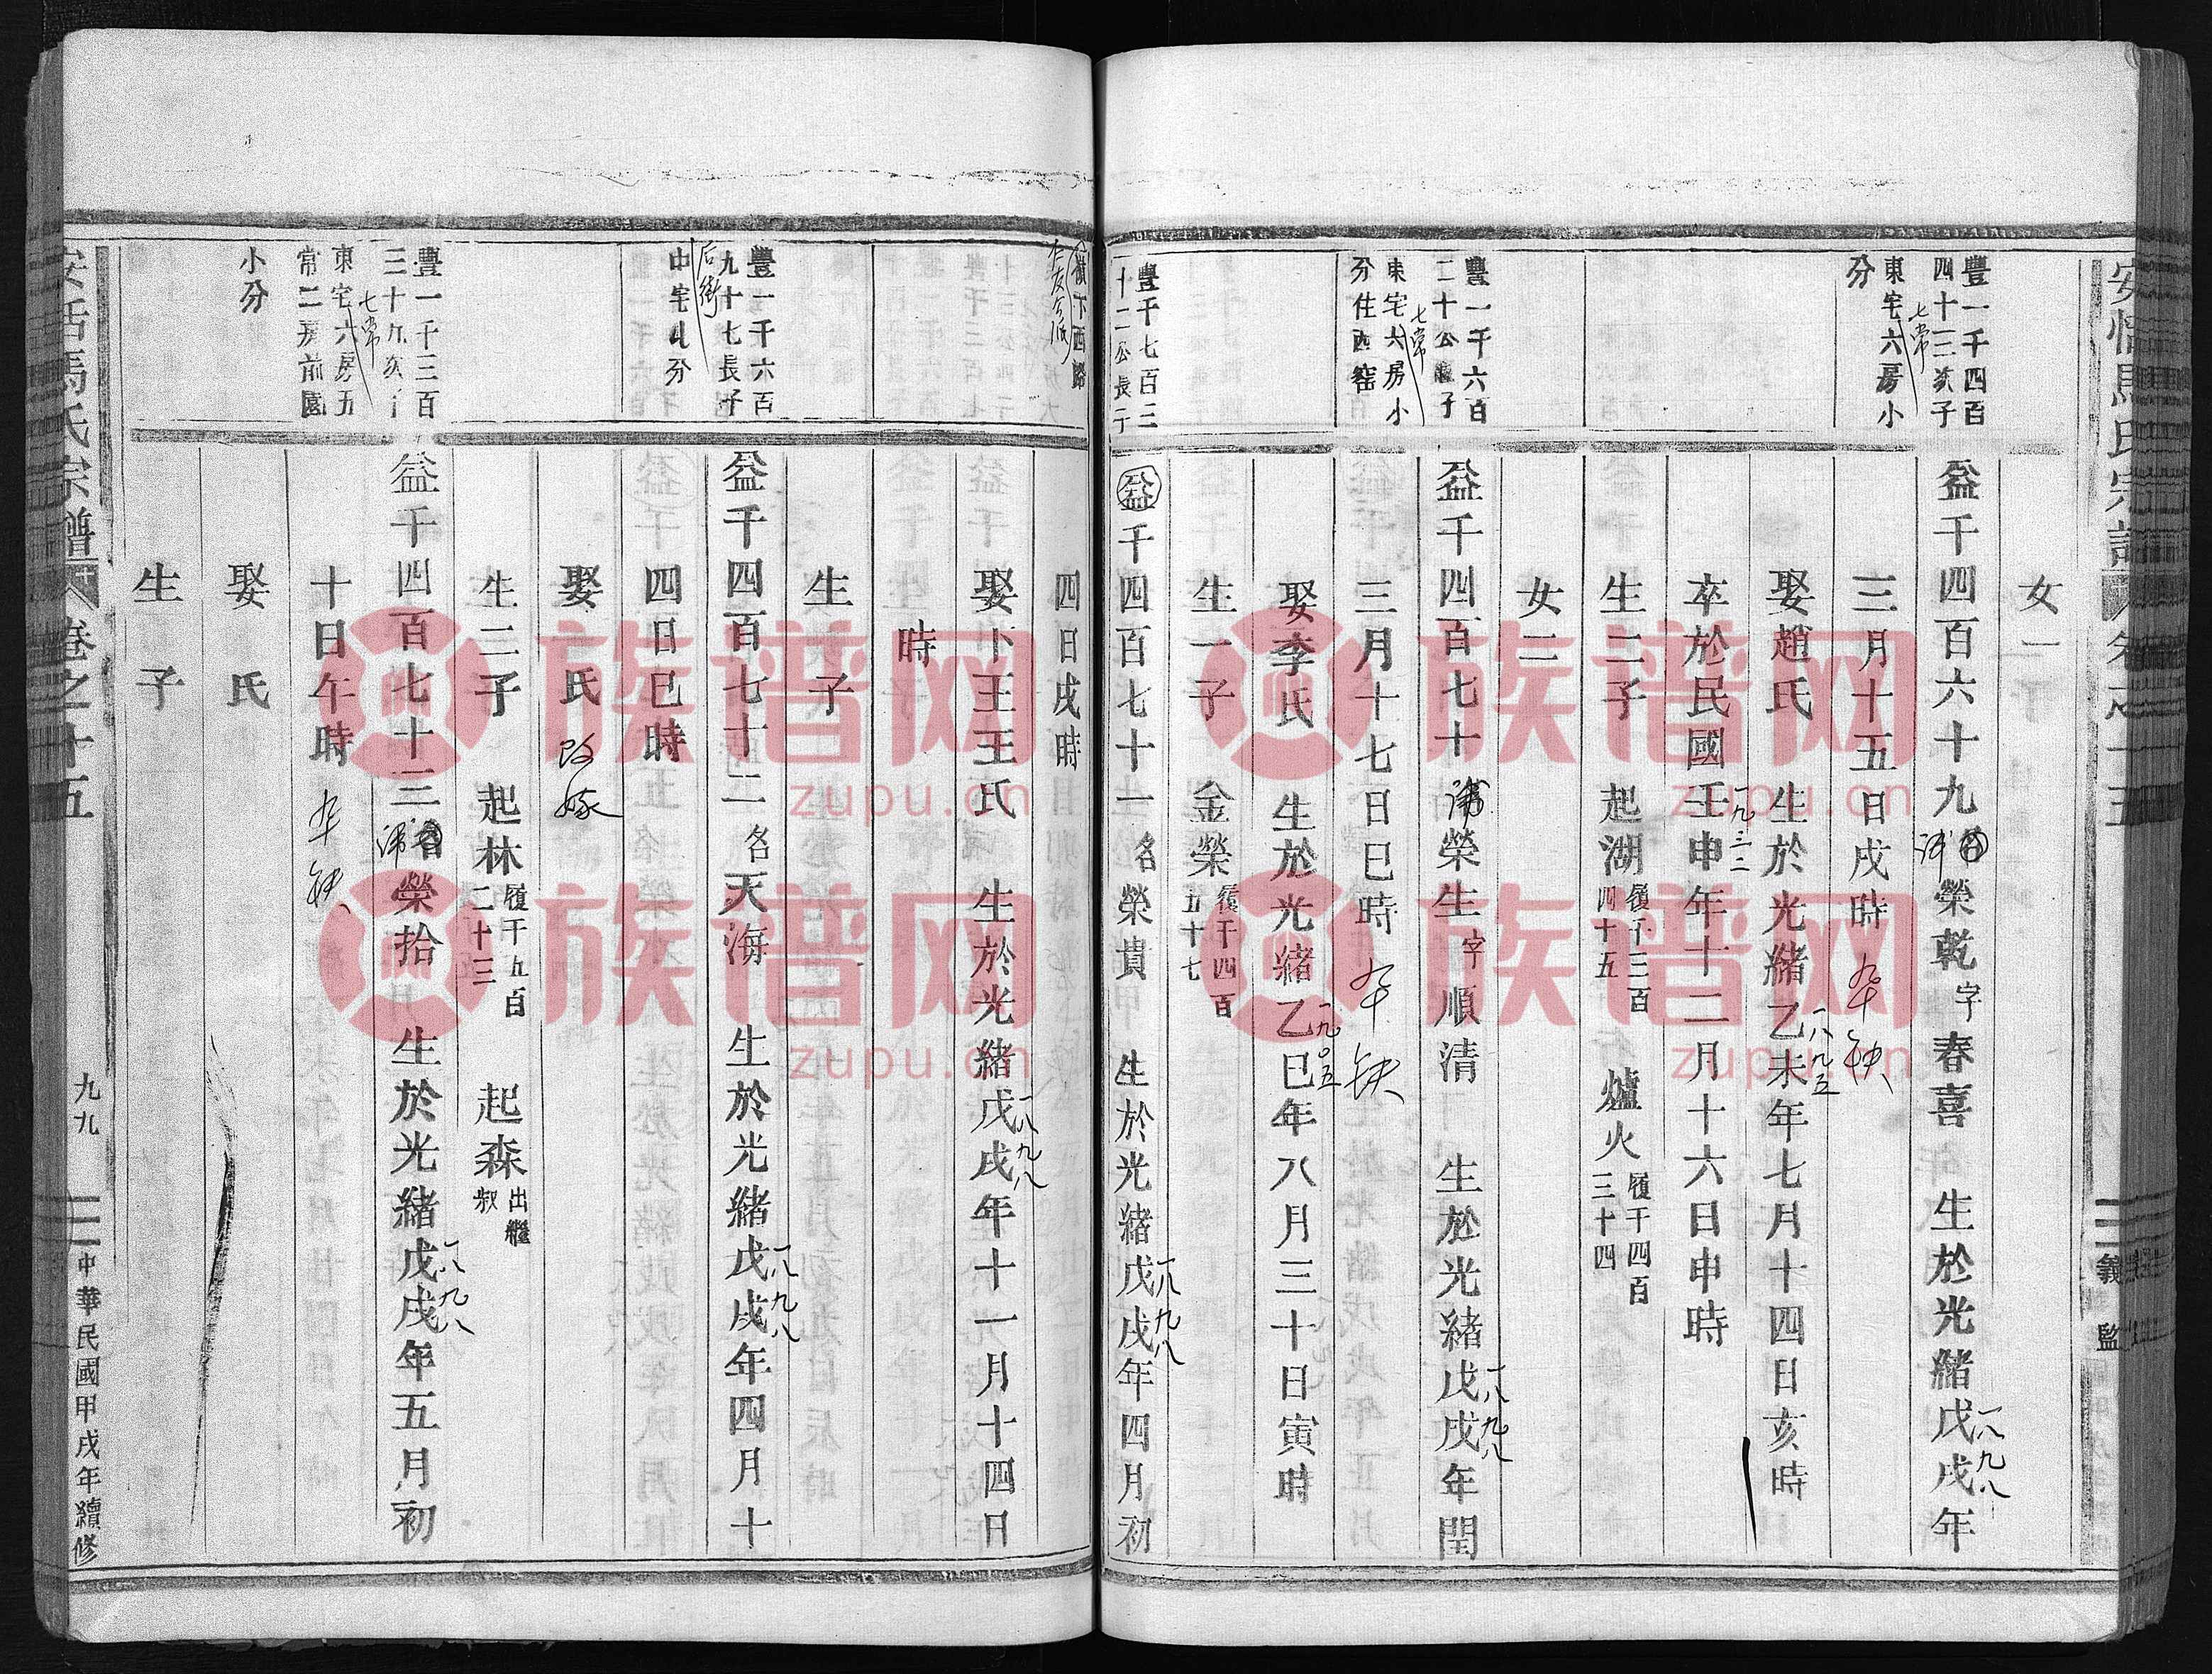 豐一千四百
四十三亥子
七常
東宅六房小
分
女一
益千四百六十九 諱 榮乾字春喜 生於光緒戊戌年
一八九八
三月十五日戌時 卒缺
娶趙氏 生於光緒乙未年七月十四日亥時
一八九五
卒於民國壬申年十二月十六日申時
一九三二
生二子 起湖 履千三百四十五 爐火 履千四百三十四
女二
豐一千六百
二十公 子
七常
東宅六房小
分住西窰
益千四百七十 諱 榮生字順清 生於光緒戊戌年閏
一八九八
三月十七日巳時 卒缺
娶李氏 生於光緒乙巳年八月三十日寅時
一九〇五
生一子 金榮 履千四百五十七
豐千七百二
十二公長子
益千四百七十一 名榮貴 生於光緒戊戌年四月初
一八九八
四日戌時
娶卞王王氏 生於光緒戊戌年十一月十四日
一八九八
時
生子
豐一千六百
九十七長子
后街
中宅 分
益千四百七十二 名天海 生於光緒戊戌年四月十
一八九八
四日巳時
娶氏 改嫁
生二子 起林 履千五百二十三 起森 出繼叔
豐一千三百
三十九亥
七常
東宅六房五
常二房前園
小分
益千四百七十三 諱 榮拾 生於光緒戊戌年五月初
一八九八
十日午時 卒缺
娶氏
生子
宗譜 卷之十五 九九 中華民國甲戌年續修